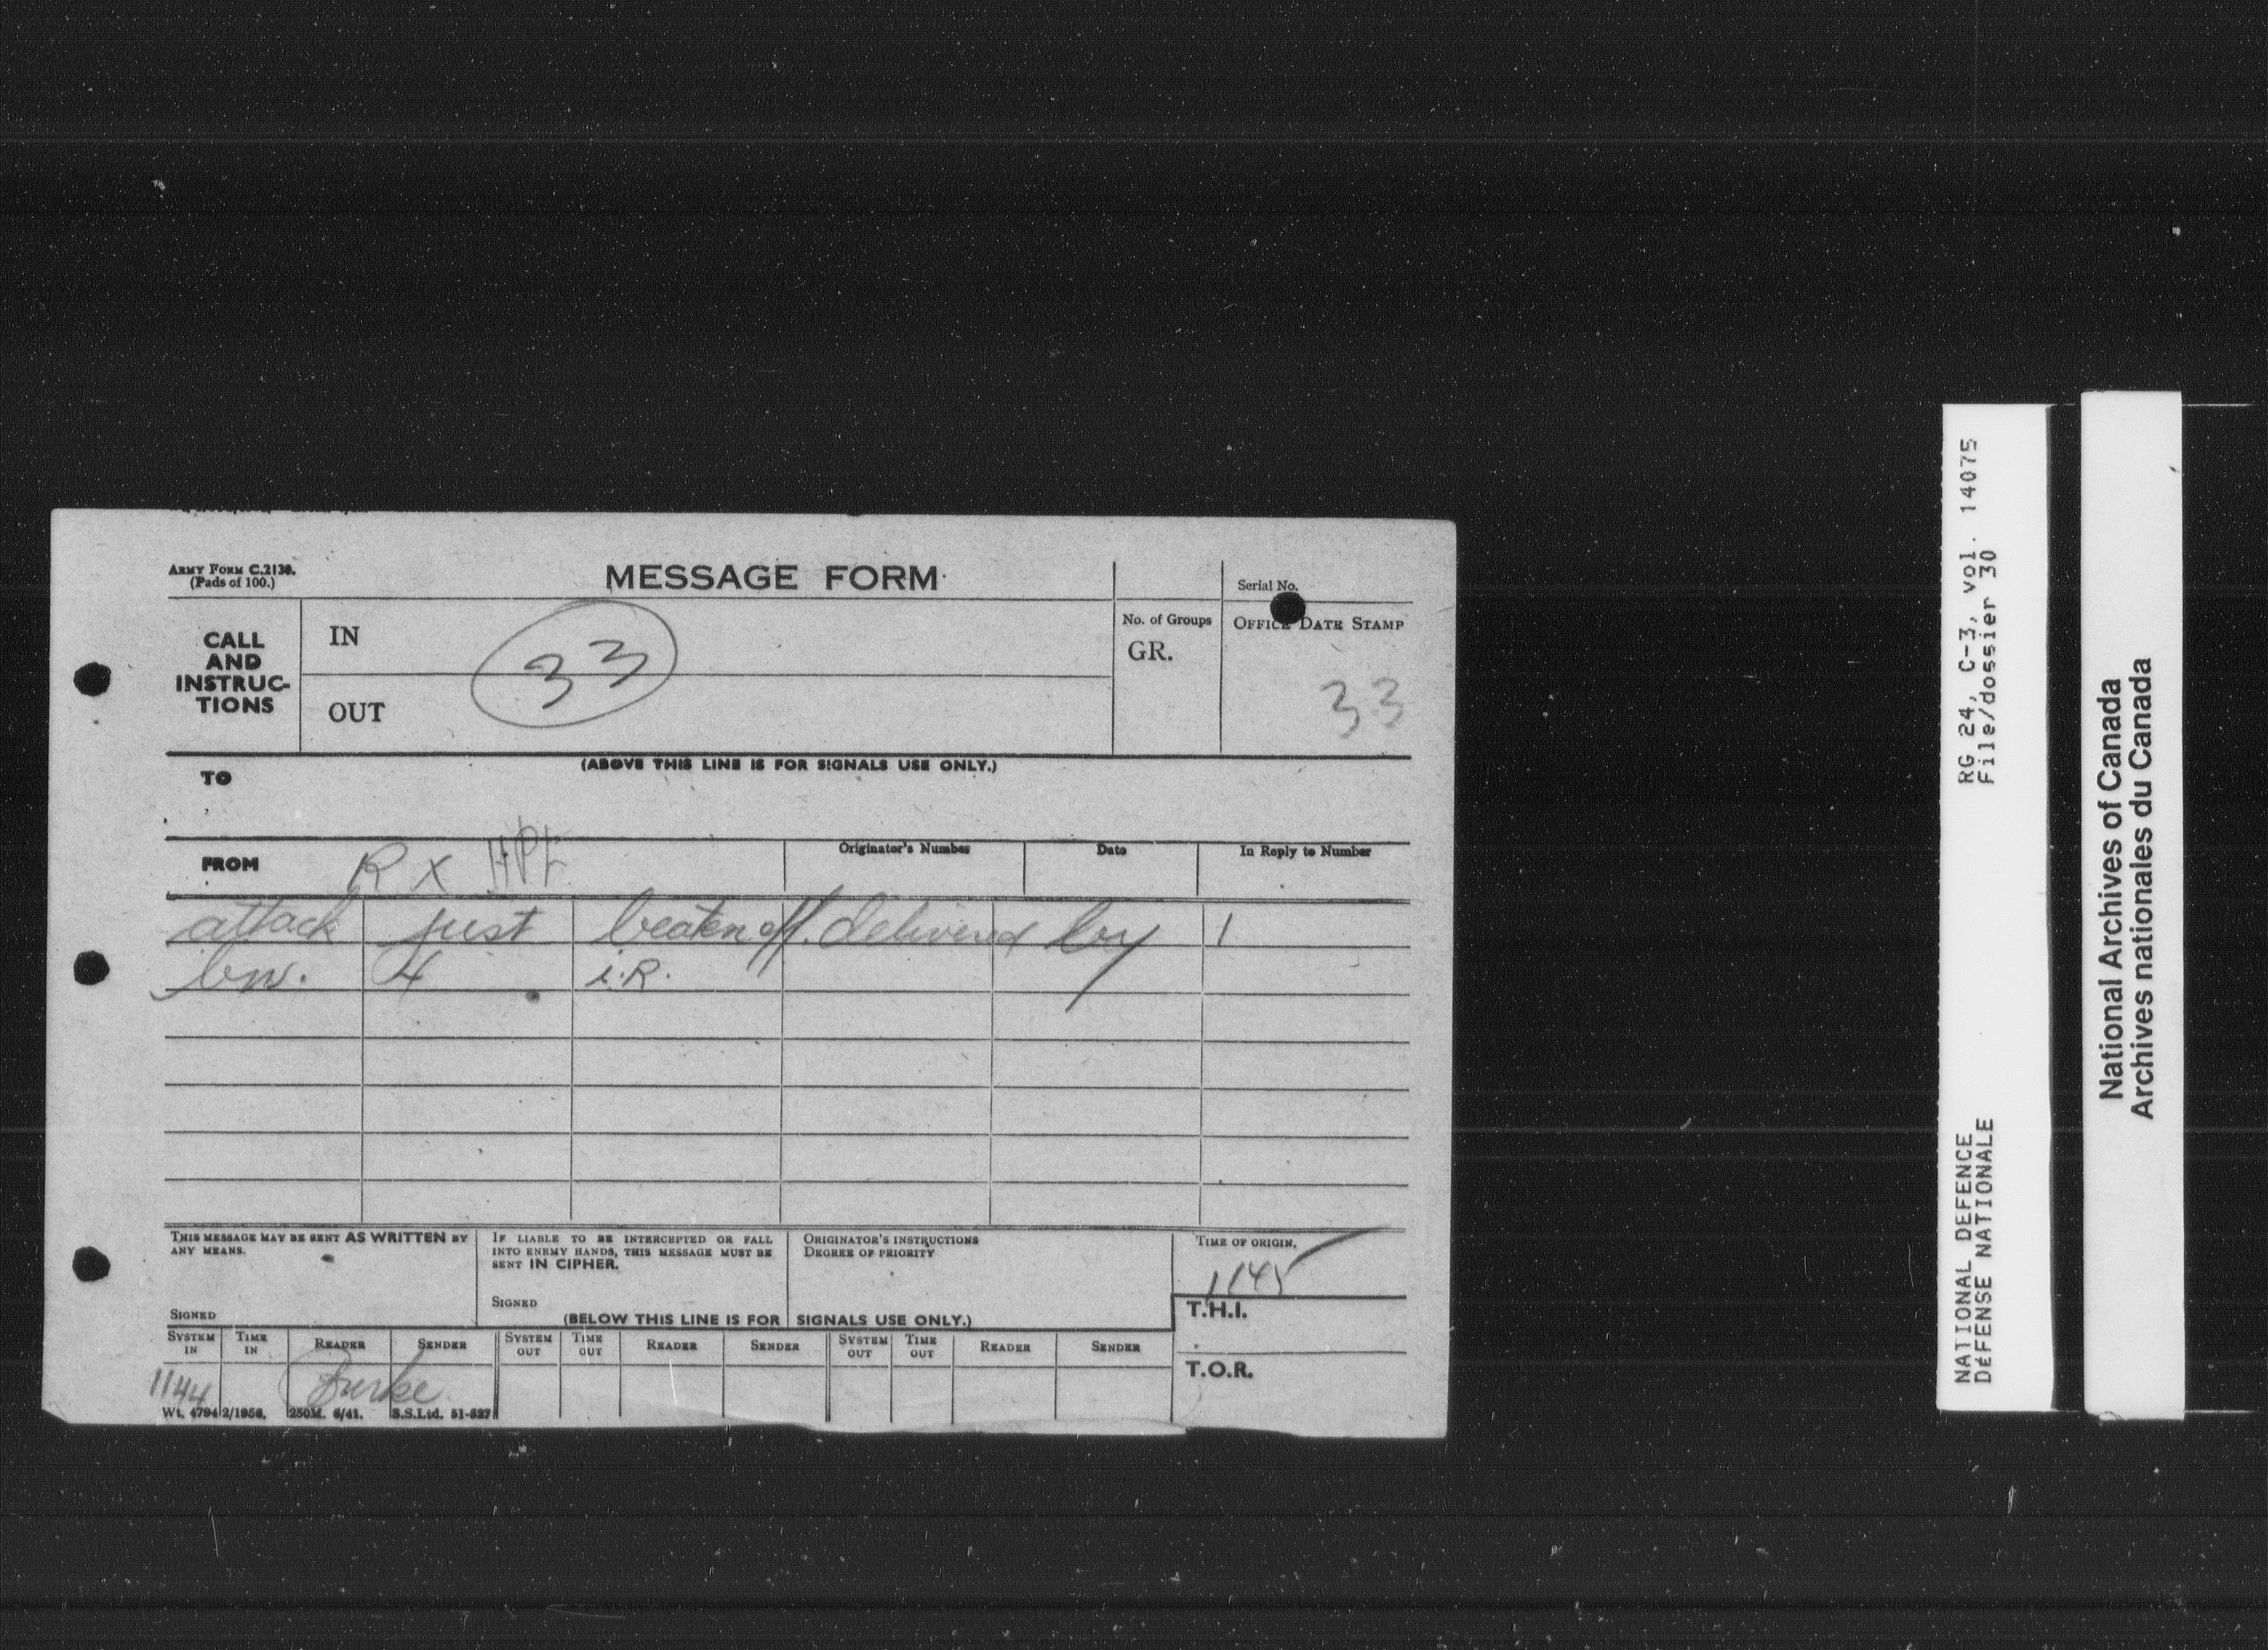 ARMY FORM C.2130.
(Pads of 100.)
MESSAGE FORM
Serial No.
CALL AND INSTRUC-TIONS
IN
OUT
33
No. of Groups
GR.
OFFICE DATE STAMP
33
(ABOVE THIS LINE IS FOR SIGNALS USE ONLY.)
TO
FROM
R X
Originator's Number
Date
In Reply to Number
attack just beaten off. delivered by 1
bn. 4 i.R.
THIS MESSAGE MAY BE SENT AS WRITTEN BY
ANY MEANS.
SIGNED
IF LIABLE TO BE INTERCEPTED OR FALL
INTO ENEMY HANDS, THIS MESSAGE MUST BE
SENT IN CIPHER.
SIGNED
ORIGINATOR'S INSTRUCTIONS
DEGREE OF PRIORITY
TIME OF ORIGIN.
1145
(BELOW THIS LINE IS FOR SIGNALS USE ONLY.)
T.H.I.
T.O.R.
SYSTEM IN TIME IN READER SENDER SYSTEM OUT TIME OUT READER SENDER SYSTEM OUT TIME OUT READER SENDER
1144 Burke
Wt. 47942/1956. 250M. 6/41. S.S.Ltd. 51-527
RG 24, C-3, vol. 14075
File/dossier 30
NATIONAL DEFENCE
DÉFENSE NATIONALE
National Archives of Canada
Archives nationales du Canada